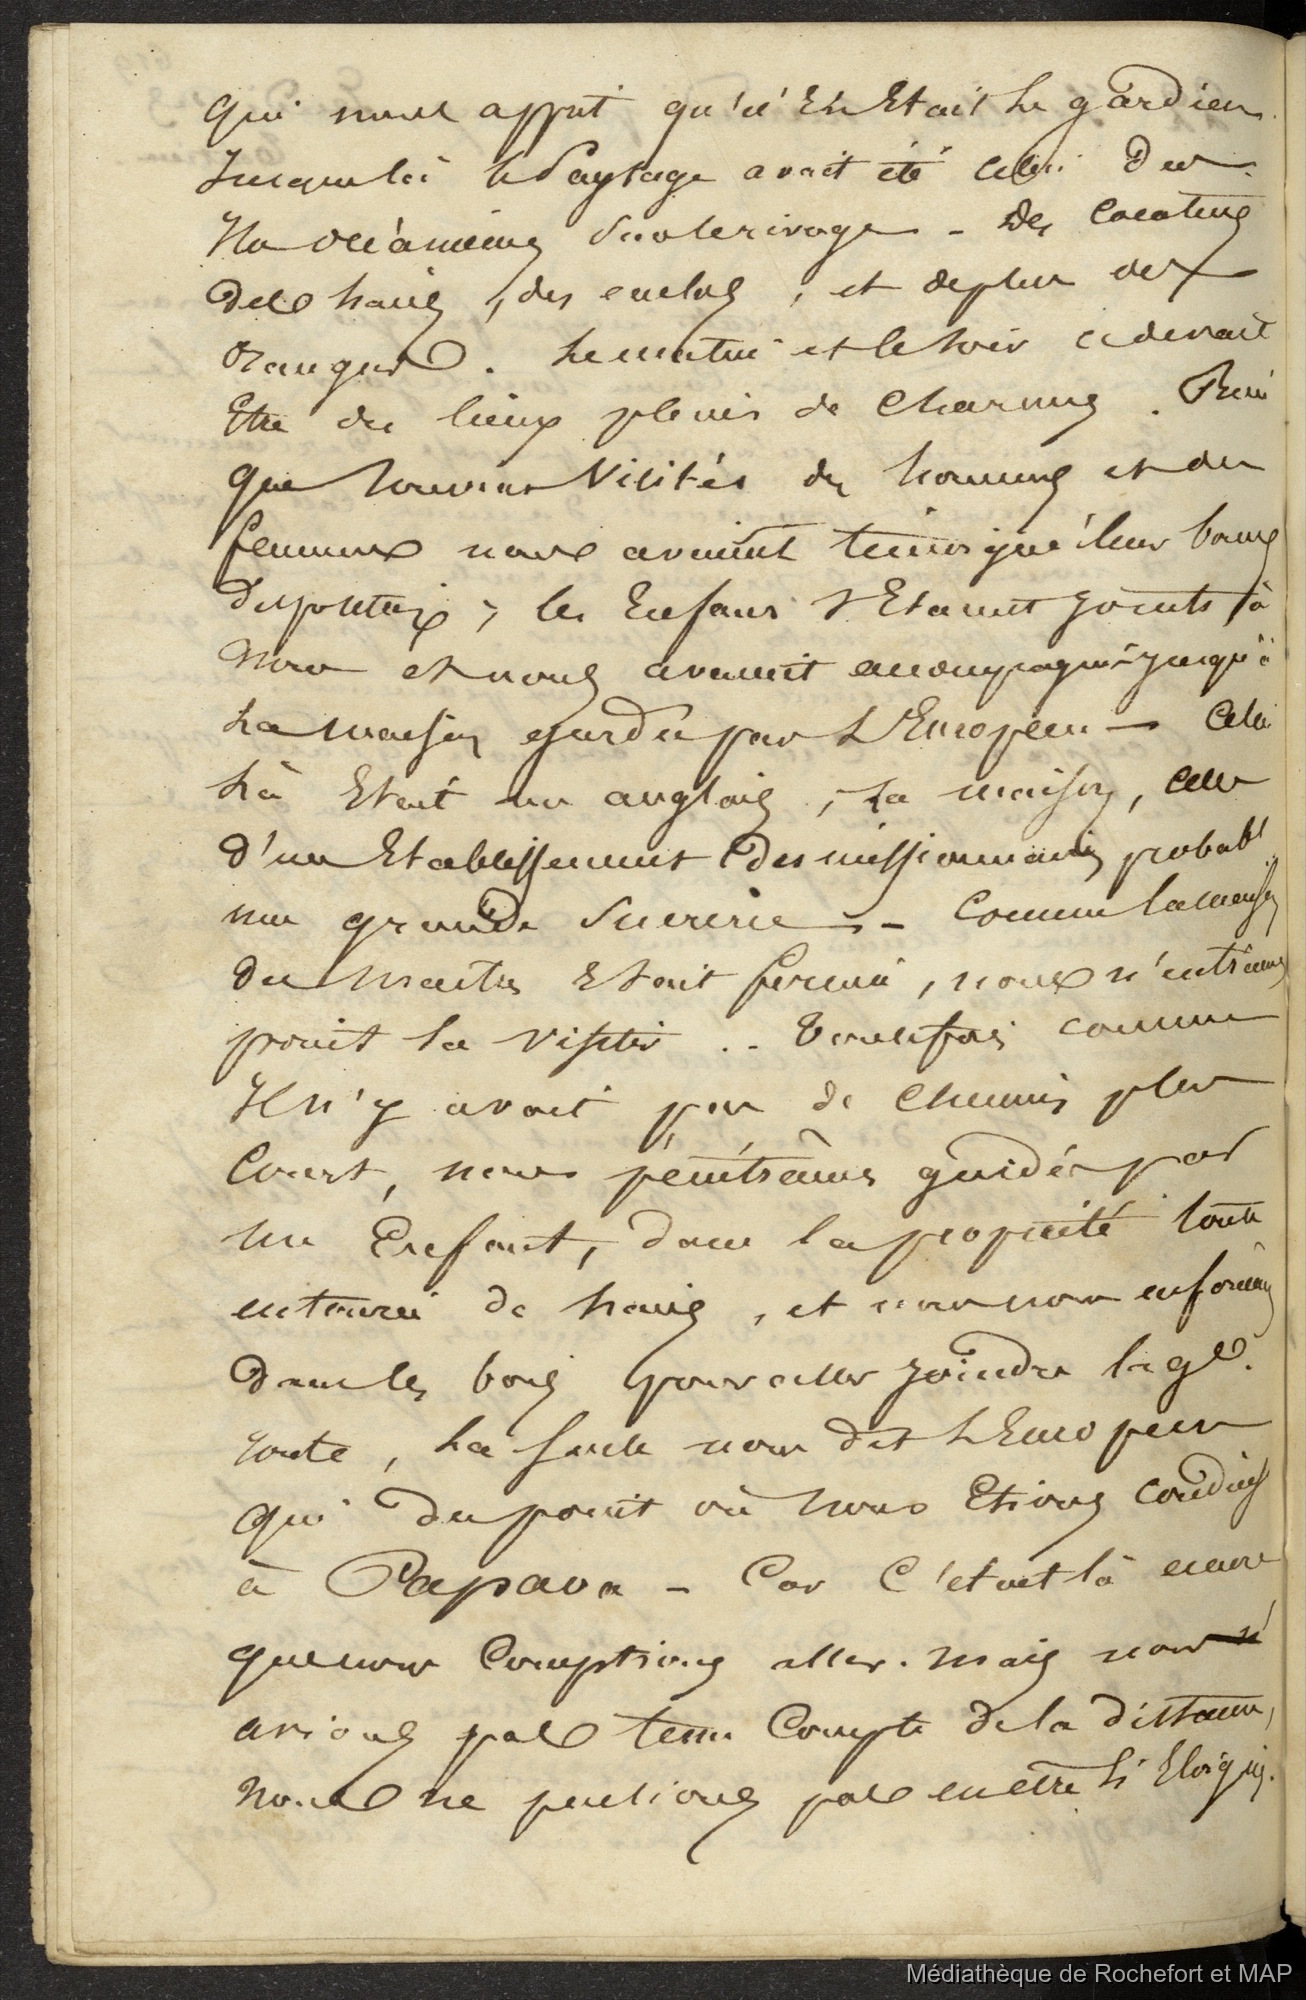 qui nous apprit qu'il En Etait le gardien.
Jusque là le Paysage avait été celui des
Iles océaniennes sur le rivage - des cocotiers
des haies, des enclos, et de plus des
orangers. le matin et le soir ce devait
Etre des lieux pleins de charmes.
que nous visités des hommes et des
femmes nous avaient témoigné leur bonnes
disposition ; les Enfans s'Etaient joints à
nous et nous avaient accompagnés jusqu'à
la maison gardée par l'Européen - Celui
là Etait un anglais, la maison, celle
d'un Etablissement des missionnaires, probabt
une grande Sucrerie - Comme la maison
du maitre Etait fermée, nous n'entrâmes
point la visiter .. Toutefois comme
Il n'y avait pas de chemin plus
Court, nous pénétrâmes guidés par
un Enfant, dans la propriété toute
entourée de haies, et nous nous enfonçâmes
dans les bois pour aller joindre la gde
route, la seule nous dit l'Européen
qui du point où nous Etions conduisit
à Papaoa - Car C'était là encore
que nous Comptions aller. mais nous n'
avions pas tenu Compte de la distance,
Nous ne pensions pas en etre si Eloignés.